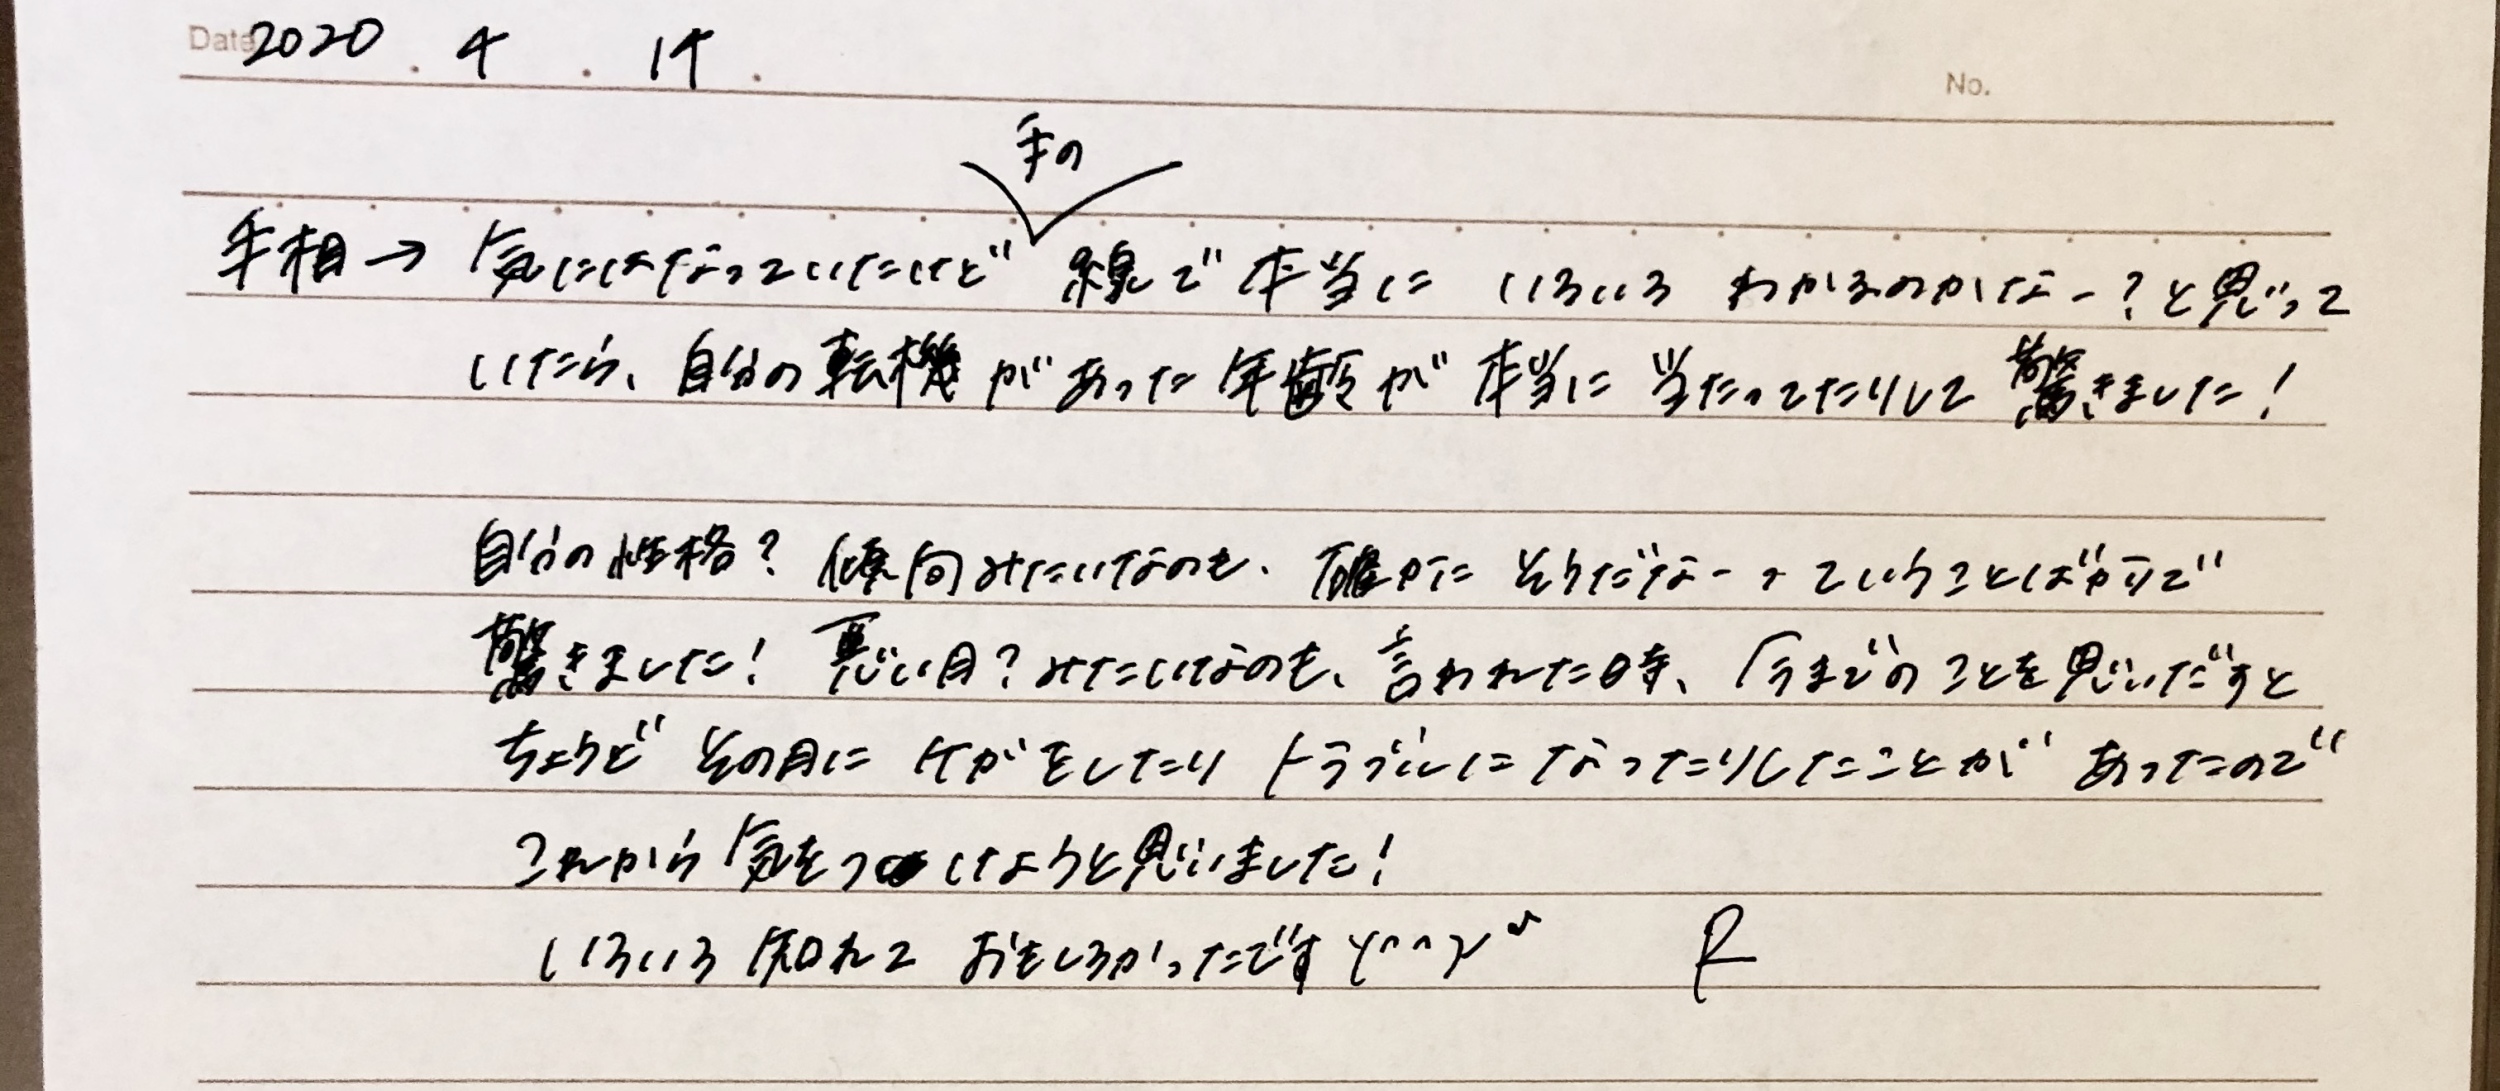 Date 2020 . 4 . 14 .
No.
手の
手相→ 気にはなっていたけど 線で 本当に いろいろ わかるのかなー?と思って
いたら、自分の転機があった年齢が本当に当たってたりして驚きました!
自分の性格? 傾向みたいなのも、確かにそうだなーっていうことばかりで
驚きました! 悪い月?みたいなのも、言われた時、今までのことを思いだすと
ちょうど その月に ケガをしたり トラブルになったりしたことが あったので
これから気をつけようと思いました!
いろいろ知れて おもしろかったです(^^)♪ R